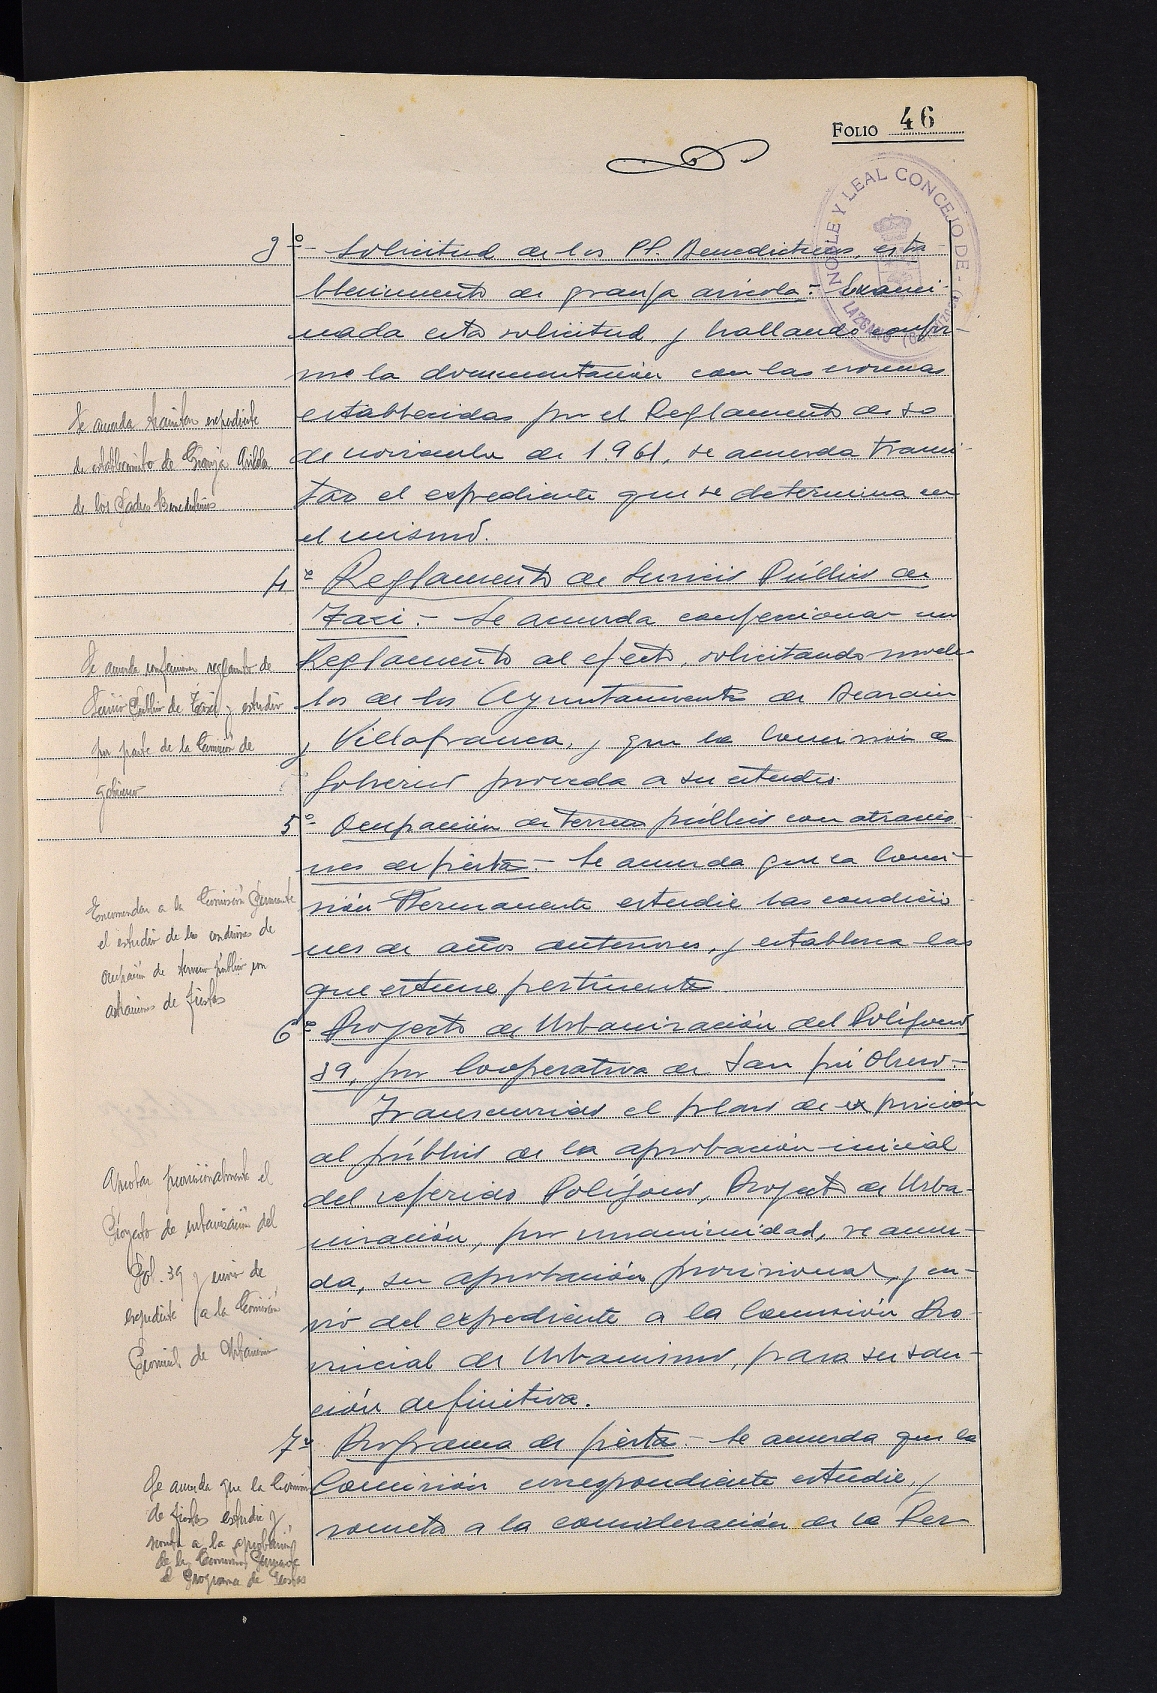 FOLIO 46
NOBLE Y LEAL CONCEJO DE
LAZCANO
3º- Solicitud de los PP. Benedictinos, esta-
blecimiento de granja avícola:- Exami-
nada esta solicitud, y hallando confor-
me la documentación con las normas
establecidas por el Reglamento de 30
de noviembre de 1.961, se acuerda trami-
tar el expediente que se determina en
el mismo.
Se acuerda tramitar expediente
de establecimiento de Granja Avícola
de los Padres Benedictinos
4º Reglamento de Servicio Público de
Taxi.- Se acuerda confeccionar un
Reglamento al efecto, solicitando mode-
los de los Ayuntamientos de Beasain
y Villafranca, y que la Comisión de
Gobierno proceda a su estudio.
Se acuerda confeccionar reglamento de
Servicio Público de Taxi y estudio
por parte de la Comisión de
gobierno
5º- Ocupación de terreno público con atraccio-
nes de fiesta.- Se acuerda que la Comi-
sión Permanente estudie las condicio-
nes de años anteriores, y establezca las
que estime pertinente
Encomendar a la Comisión Permanente
el estudio de las condiciones de
ocupación de terreno público con
atracciones de fiestas
6º- Proyecto de Urbanización del Polígono
39, por Cooperativa de San José Obrero.-
Transcurrido el plazo de exposición
al público de la aprobación inicial
del referido Polígono, Proyecto de Urba-
nización, por unanimidad, se acuer-
da, su aprobación provisional, y en-
vio del expediente a la Comisión Pro-
vincial de Urbanismo, para su san-
ción definitiva.
Aprobar provisionalmente el
Proyecto de urbanización del
Pol. 39 y envio de
expediente a la Comisión
Provincial de Urbanismo
7º Programa de fiesta.- Se acuerda que la
Comisión correspondiente estudie, y
someta a la consideración de la Per
Se acuerda que la Comisión
de fiestas estudie y
someta a la aprobación
de la Comisión Permanente
el Programa de fiestas